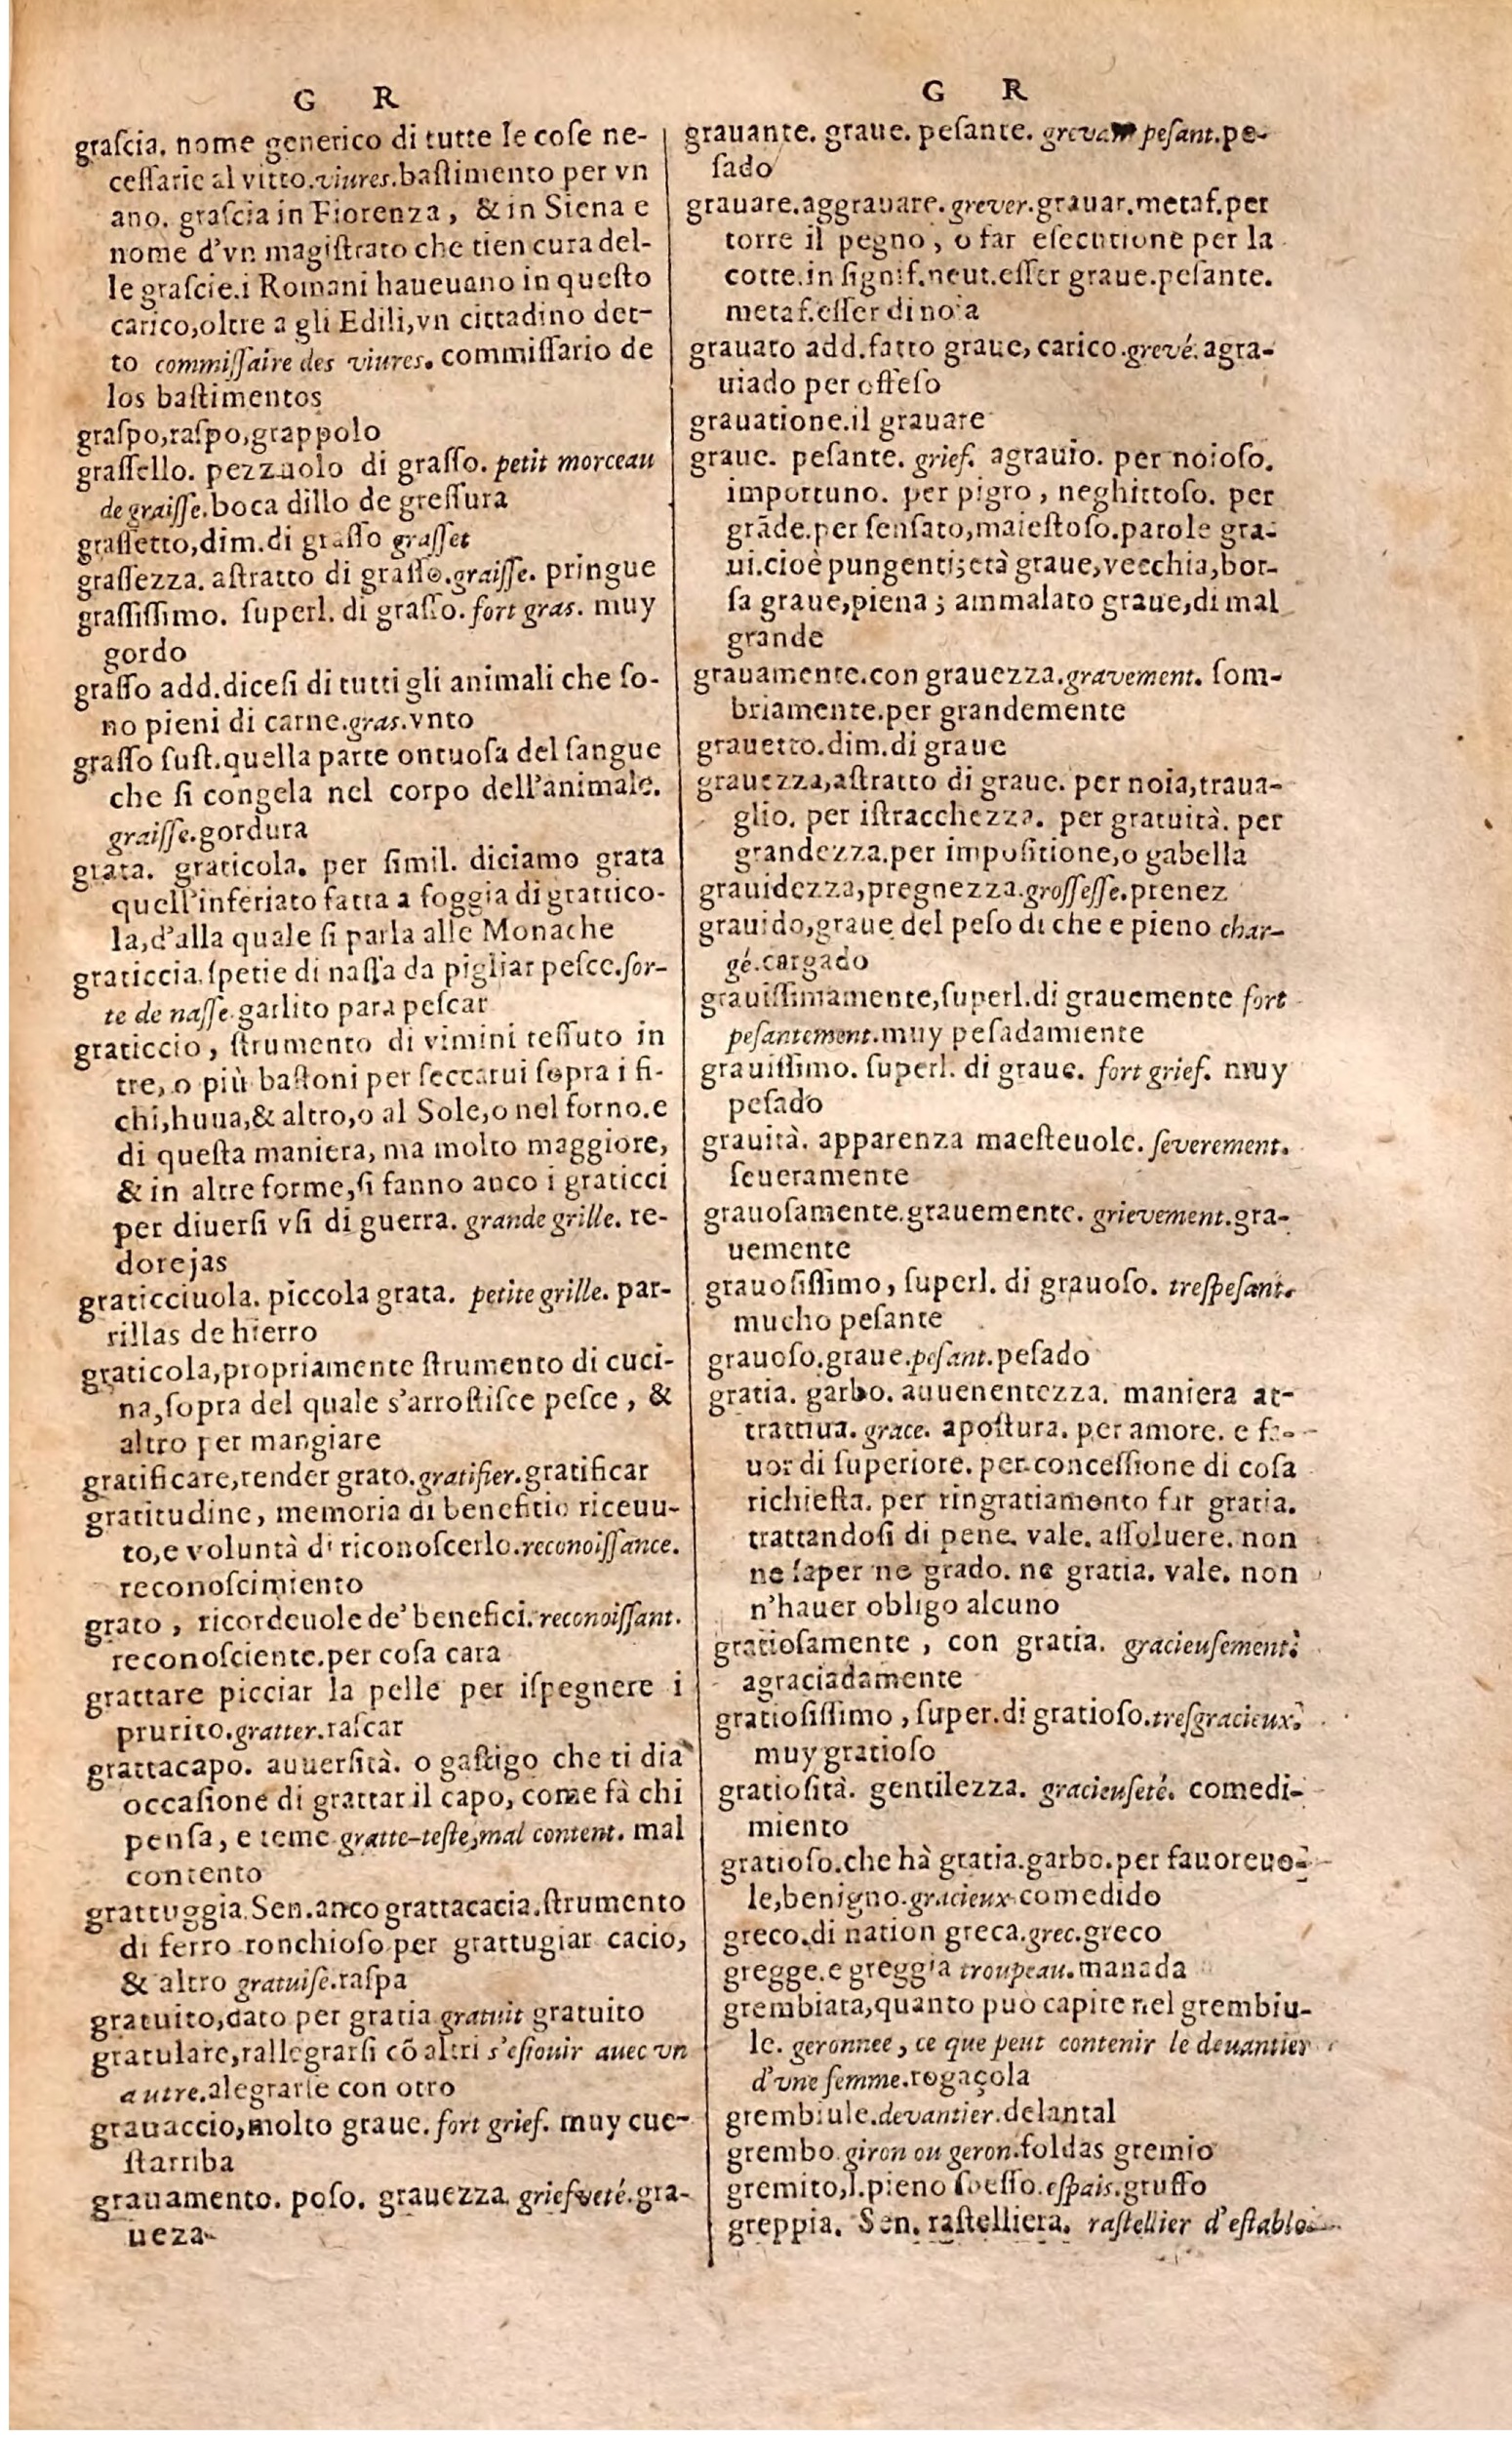 G R
graſcia. nome generico di tutte le coſe ne-
ceſſarie al vitto.viures.baſtimento per vn
ano. graſcia in Fiorenza, & in Siena e
nome d'vn magiſtrato che tien cura del-
le graſcie.i Romani haueuano in queſto
carico,oltre a gli Edili,vn cittadino det-
to commiſſaire des viures. commiſſario de
los baſtimentos
graſpo,raſpo,grappolo
graſſello. pezzuolo di graſſo. petit morceau
de graiſſe.boca dillo de greſſura
graſſetto,dim.di graſſo graſſet
graſſezza. aſtratto di graſſo.graiſſe. pringue
graſſiſſimo. ſuperl. di graſſo. fort gras. muy
gordo
graſſo add.diceſi di tutti gli animali che ſo-
no pieni di carne.gras.vnto
graſſo ſuſt.quella parte ontuoſa del ſangue
che ſi congela nel corpo dell'animale.
graiſſe.gordura
grata. graticola. per ſimil. diciamo grata
quell'inferiato fatta a foggia di grattico-
la,d'alla quale ſi parla alle Monache
graticcia.ſpetie di naſſa da pigliar peſce.ſor-
te de naſſe.garlito para peſcar
graticcio, ſtrumento di vimini teſſuto in
tre, o più baſtoni per ſeccarui ſopra i fi-
chi,huua,& altro,o al Sole,o nel forno.e
di queſta maniera, ma molto maggiore,
& in altre forme,ſi fanno anco i graticci
per diuerſi vſi di guerra. grande grille. re-
dorejas
graticciuola. piccola grata. petite grille. par-
rillas de hierro
graticola,propriamente ſtrumento di cuci-
na,ſopra del quale s'arroſtiſce peſce, &
altro per mangiare
gratificare,render grato.gratifier.gratificar
gratitudine, memoria di benefitio riceuu-
to,e voluntà di riconoſcerlo.reconoiſſance.
reconoſcimiento
grato, ricordeuole de' benefici. reconoiſſant.
reconoſciente.per coſa cara
grattare picciar la pelle per iſpegnere i
prurito.gratter.raſcar
grattacapo. auuerſità. o gaſtigo che ti dia
occaſione di grattar il capo, come fà chi
penſa, e teme gratte-teſte,mal content. mal
contento
grattuggia.Sen.anco grattacacia.ſtrumento
di ferro ronchioſo per grattugiar cacio,
& altro gratuiſe.raſpa
gratuito,dato per gratia gratuit gratuito
gratulare,rallegrarſi cõ altri s'eſiouir auec vn
autre.alegrarſe con otro
grauaccio,molto graue. fort grief. muy cue-
ſtarriba
grauamento. poſo. grauezza. griefveté.gra-
ueza
G R
grauante. graue. peſante. peſant.pe-
ſado
grauare.aggrauare. grever.grauar.metaf.per
torre il pegno, o far eſecutione per la
cotte.in ſignif.neut.eſſer graue.peſante.
metaf.eſſer di noia
grauato add.fatto graue, carico.grevé. agra-
uiado per offeſo
grauatione.il grauare
graue. peſante. grief. agrauio. per noioſo.
importuno. per pigro, neghittoſo. per
grãde.per ſenſato,maieſtoſo.parole gra-
ui.cioè pungenti;età graue,vecchia,bor-
ſa graue,piena; ammalato graue,di mal
grande
grauamente.con grauezza.gravement. ſom-
briamente.per grandemente
grauetto.dim.di graue
grauezza,aſtratto di graue. per noia,traua-
glio. per iſtracchezza. per gratuità. per
grandezza.per impoſitione,o gabella
grauidezza,pregnezza.groſſeſſe.prenez
grauido,graue del peſo di che e pieno char-
gé.cargado
grauiſſimamente,ſuperl.di grauemente fort
peſantement.muy peſadamiente
grauiſſimo. ſuperl. di graue. fort grief. muy
peſado
grauità. apparenza maeſteuole. ſeverement.
ſeueramente
grauoſamente.grauemente. grievement.gra-
uemente
grauoſiſſimo, ſuperl. di grauoſo. treſpeſant.
mucho peſante
grauoſo.graue.peſant.peſado
gratia. garbo. auuenentezza. maniera at-
trattiua. grace. apoſtura. per amore. e fa-
uor di ſuperiore. per conceſſione di coſa
richieſta. per ringratiamento far gratia.
trattandoſi di pene. vale. aſſoluere. non
ne ſaper ne grado. ne gratia. vale. non
n'hauer obligo alcuno
gratioſamente, con gratia. gracieuſement.
agraciadamente
gratioſiſſimo, ſuper.di gratioſo.treſgracieux.
muy gratioſo
gratioſità. gentilezza. gracieuſeté. comedi-
miento
gratioſo.che hà gratia.garbo.per fauoreuo-
le,benigno.gracieux.comedido
greco.di nation greca.grec.greco
gregge.e greggia troupeau.manada
grembiata,quanto può capire nel grembiu-
le. geronnee, ce que peut contenir le deuantier
d'vne femme.rogaçola
grembiule.devantier.delantal
grembo.giron ou geron.foldas gremio
gremito,l.pieno ſpeſſo.eſpais.gruſſo
greppia. Sen. raſtelliera. raſtellier d'eſtablo.